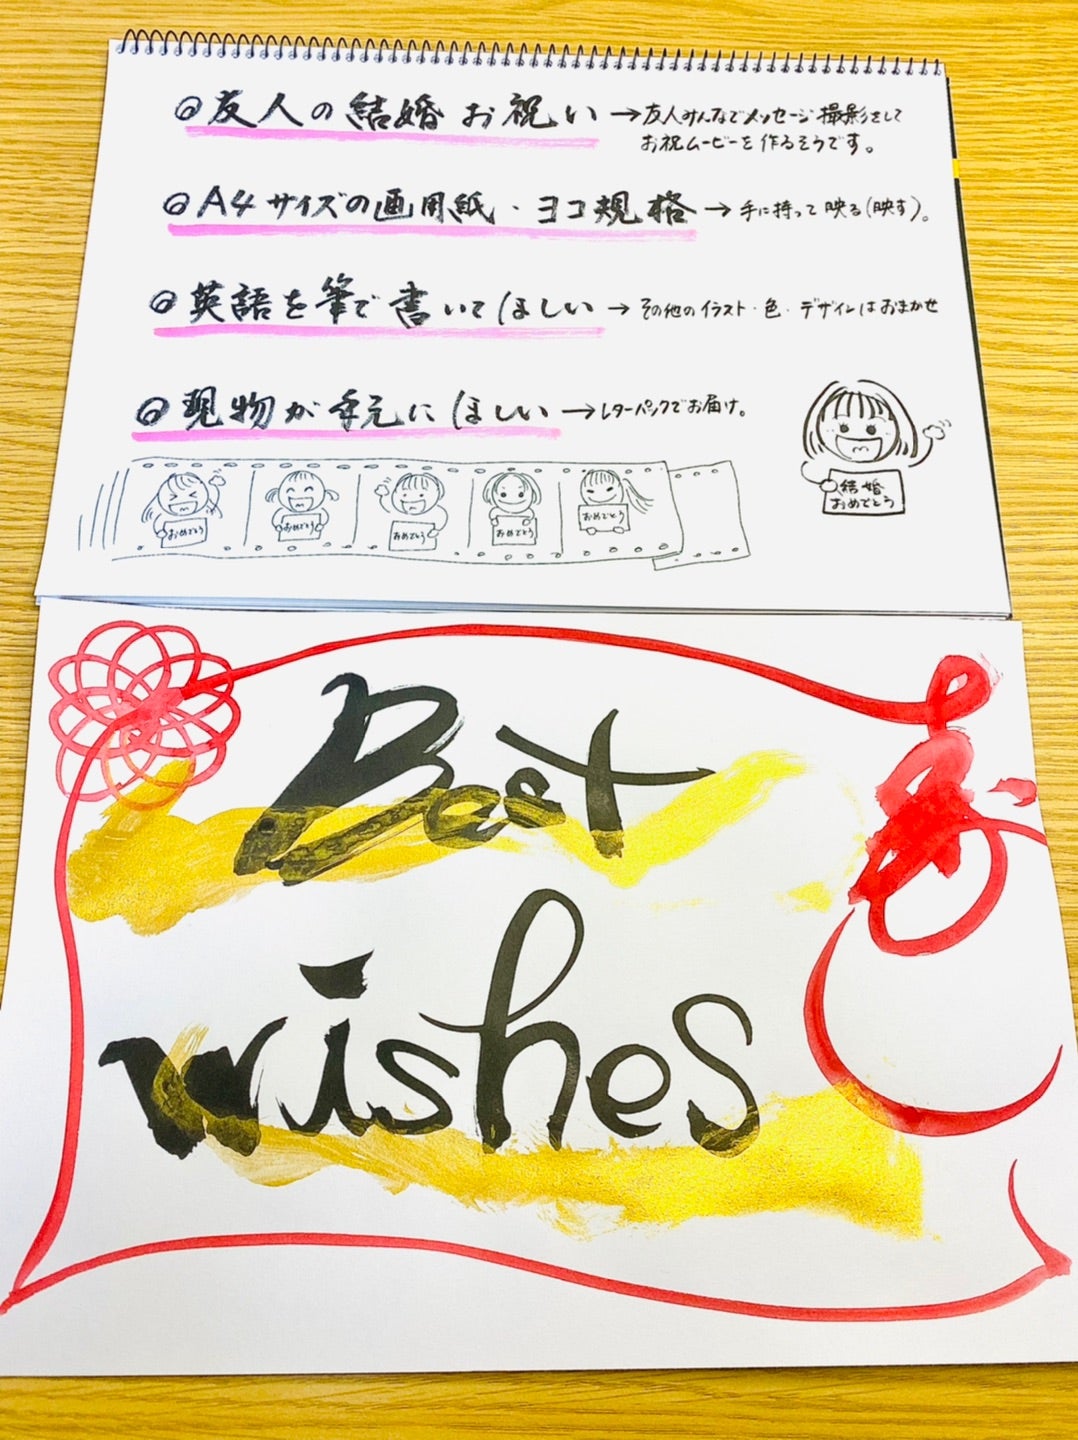 ◎友人の結婚お祝い→友人みんなでメッセージ撮影をして
お祝ムービーを作るそうです。
◎A4サイズの画用紙・ヨコ規格→手に持って映る(映す)。
◎英語を筆で書いてほしい→その他のイラスト・色・デザインはおまかせ
◎現物が手元にほしい→レターパックでお届け。
結婚
おめでとう
おめでとう
おめでとう
おめでとう
おめでとう
おめでとう
Best
wishes
寿